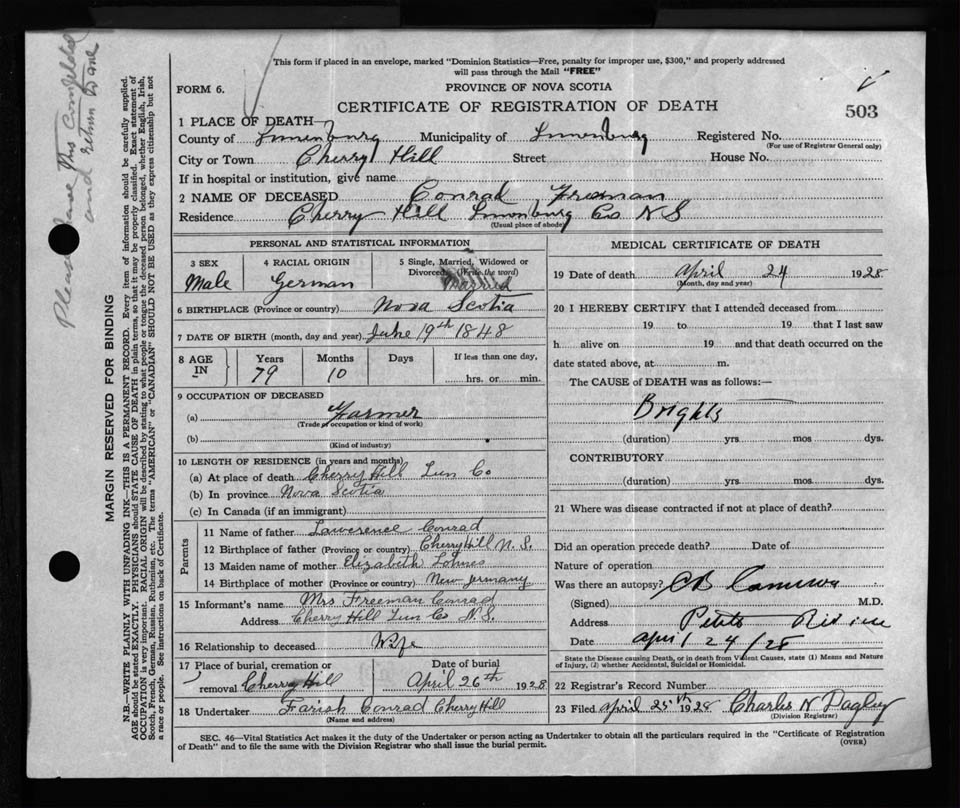 Please have this completed
and return Dane
MARGIN RESERVED FOR BINDING
N.B.—WRITE PLAINLY WITH UNFADING INK—THIS IS A PERMANENT RECORD. Every item of information should be carefully supplied.
AGE should be stated EXACTLY. PHYSICIANS should STATE CAUSE OF DEATH in plain terms, so that it may be properly classified. Exact statement of
OCCUPATION is very important. RACIAL ORIGIN will be described by stating to what people or tongue the deceased person belonged, whether English, Irish,
Scotch, French, German, Russian, Ruthenian, etc. The terms "AMERICAN" or "CANADIAN" SHOULD NOT BE USED as they express citizenship but not
a race or people. See instructions on back of Certificate.
This form if placed in an envelope, marked "Dominion Statistics—Free, penalty for improper use, $300," and properly addressed
will pass through the Mail "FREE"
FORM 6.
PROVINCE OF NOVA SCOTIA
CERTIFICATE OF REGISTRATION OF DEATH
503
1 PLACE OF DEATH—
County of Lunenburg Municipality of Lunenburg Registered No.
(For use of Registrar General only)
City or Town Cherry Hill Street House No.
If in hospital or institution, give name
2 NAME OF DECEASED Conrad Freeman
Residence Cherry Hill Lunenburg Co N S
(Usual place of abode)
PERSONAL AND STATISTICAL INFORMATION
3 SEX
Male
4 RACIAL ORIGIN
German
5 Single, Married, Widowed or
Divorced (Write the word)
Married
6 BIRTHPLACE (Province or country) Nova Scotia
7 DATE OF BIRTH (month, day and year) June 19th 1848
8 AGE IN
Years Months Days If less than one day,
79 10 hrs. or min.
9 OCCUPATION OF DECEASED
(a) Farmer
(Trade or occupation or kind of work)
(b)
(Kind of industry)
10 LENGTH OF RESIDENCE (in years and months)
(a) At place of death Cherry Hill Lun Co
(b) In province Nova Scotia
(c) In Canada (if an immigrant)
Parents
11 Name of father Lawerence Conrad
12 Birthplace of father (Province or country) Cherry Hill N. S.
13 Maiden name of mother Elizabeth Lohnes
14 Birthplace of mother (Province or country) New Germany
15 Informant's name Mrs Freeman Conrad
Address Cherry Hill Lun Co N.S.
16 Relationship to deceased Wife
17 Place of burial, cremation or
removal Cherry Hill
Date of burial
April 26th 1928
18 Undertaker Farish Conrad Cherry Hill
(Name and address)
MEDICAL CERTIFICATE OF DEATH
19 Date of death April 24 1928
(Month, day and year)
20 I HEREBY CERTIFY that I attended deceased from
19 to 19 that I last saw
h alive on 19 and that death occurred on the
date stated above, at m.
The CAUSE of DEATH was as follows:—
Brights
(duration) yrs. mos dys.
CONTRIBUTORY
(duration) yrs. mos. dys.
21 Where was disease contracted if not at place of death?
Did an operation precede death? Date of
Nature of operation
Was there an autopsy?
(Signed) M.D.
Address Petite Riviere
Date April 24/28
State the Disease causing Death, or in death from Violent Causes, state (1) Means and Nature
of Injury, (2) whether Accidental, Suicidal or Homicidal.
22 Registrar's Record Number
23 Filed April 25th 1928 Charles N Dagley
(Division Registrar)
SEC. 46—Vital Statistics Act makes it the duty of the Undertaker or person acting as Undertaker to obtain all the particulars required in the "Certificate of Registration
of Death" and to file the same with the Division Registrar who shall issue the burial permit.
(OVER)